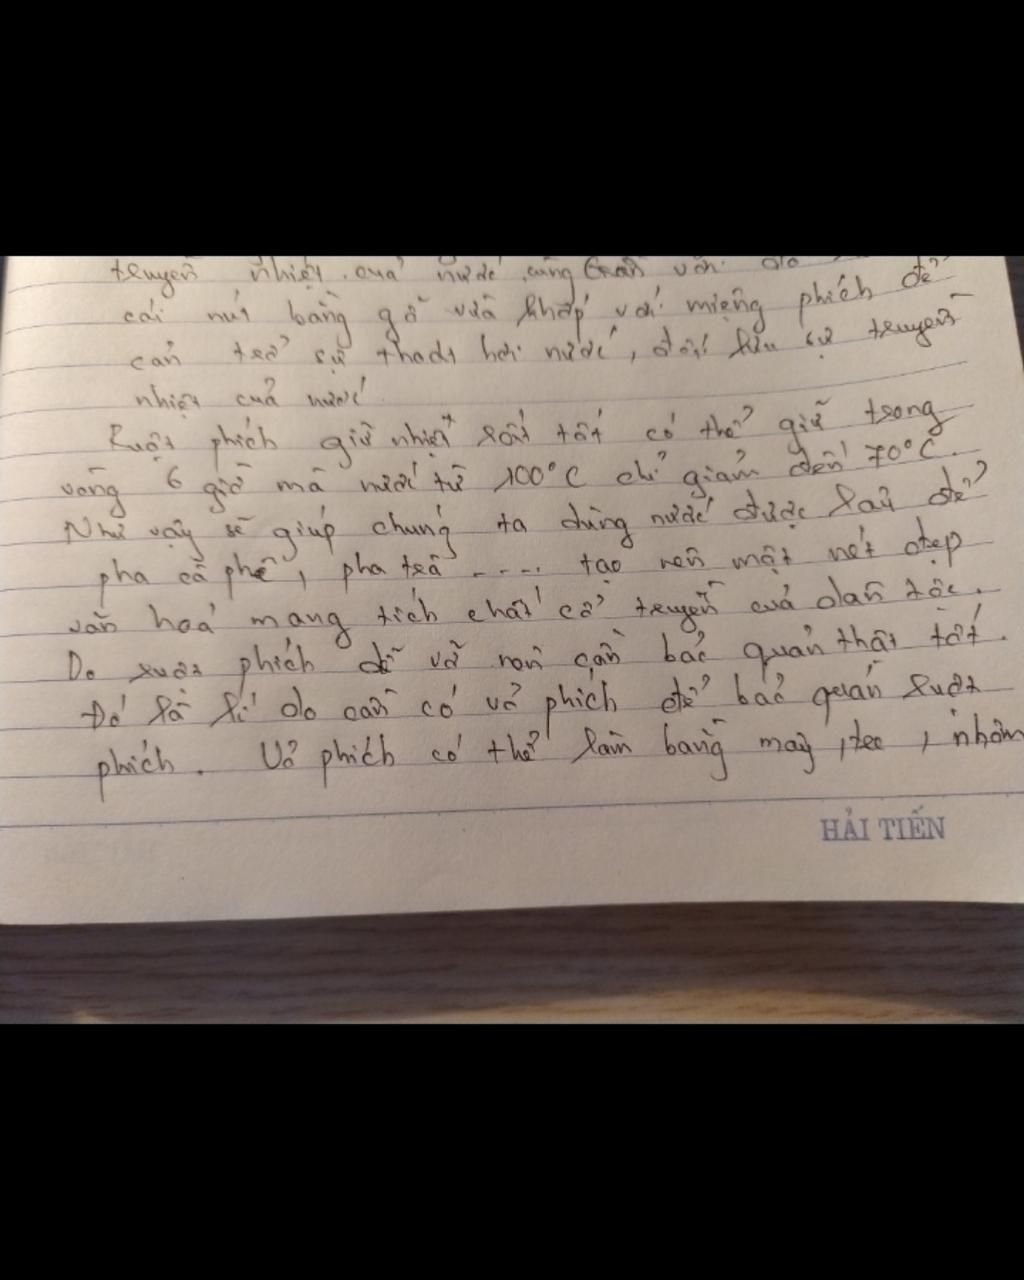 truyền nhiệt của nước cũng
cái nút bằng gỗ vừa khớp với miệng phích để
cản trở sự thoát hơi nước, đối lưu sự truyền
nhiệt của nước
Ruột phích giữ nhiệt rất tốt có thể giữ trong
vòng 6 giờ mà nước từ 100°C chỉ giảm đến 70°C.
Như vậy sẽ giúp chúng ta dùng nước được lâu để
pha cà phê, pha trà .... tạo nên một nét đẹp
văn hoá mang tích chất cổ truyền của dân tộc.
Do ruột phích dễ vỡ nên cần bảo quản thật tốt.
Đó là lí do cần có vỏ phích để bảo quản ruột
phích. Vỏ phích có thể làm bằng mây, tre, nhôm
HẢI TIẾN